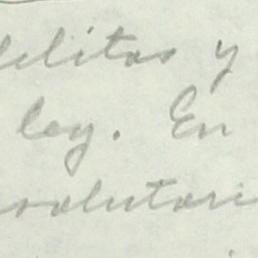 delitos y
ley. En
solutari